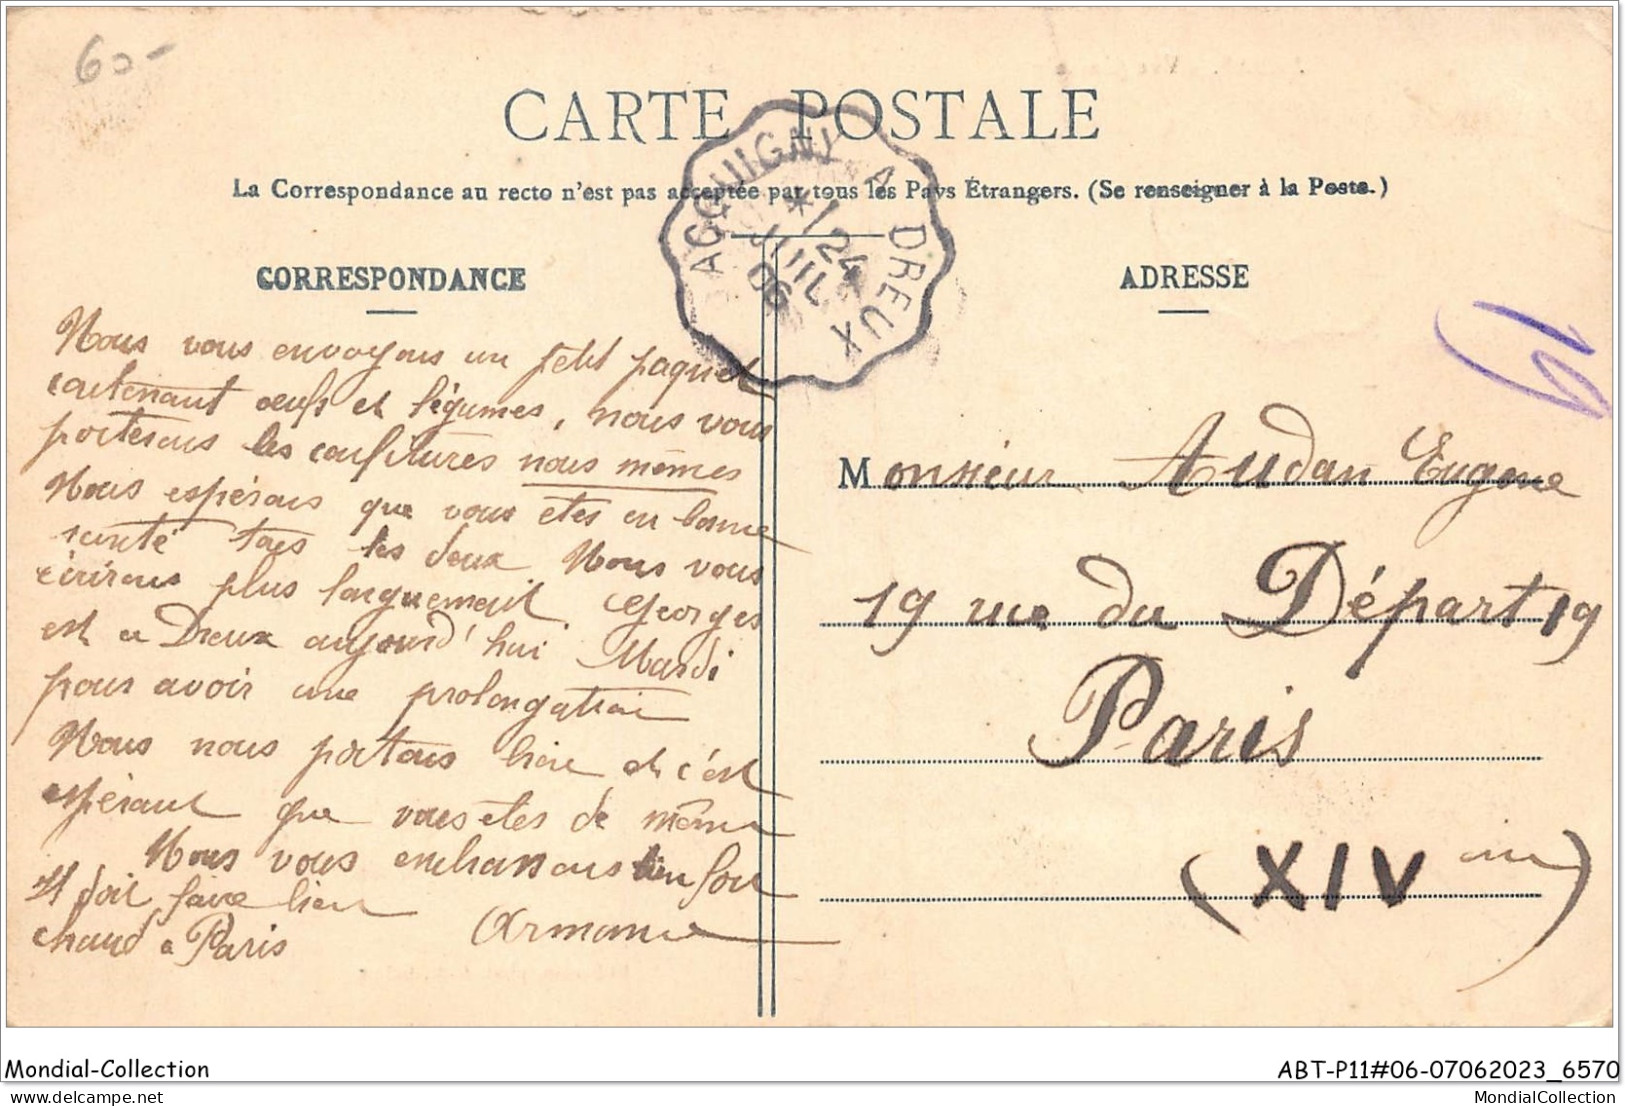 60-
CARTE POSTALE
La Correspondance au recto n'est pas acceptée par tous les Pays Étrangers. (Se renseigner à la Poste.)
ACQUIGNY A DREUX
* 24
JUIL
06
CORRESPONDANCE
Nous vous envoyons un petit paquet
contenant œufs et légumes, nous vous
porterons les confitures nous mêmes
Nous espérons que vous etes en bonne
santé tous les deux Nous vous
écrirons plus longuement. Georges
est a Dreux aujourd'hui Mardi
pour avoir une prolongation
Nous nous portons bien et c'est
espérant que vous etes de même
Nous vous embrassons bien fort
Il doit faire bien
chaud a Paris
Armance
ADRESSE
Monsieur Audan Eugene
19 rue du Départ 19
Paris
(XIV)
Mondial-Collection
ABT-P11#06-07062023_6570
delcampe.net
MondialCollection